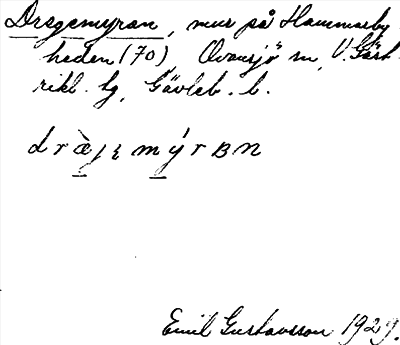 Dragemyran, mur på Hammarby
heden (70), Ovansjö sn, V. Gäst-
rikl. hg, Gävleb. l.
dràȷ̨ɛmýrʙn
Emil Gustavsson 1929.